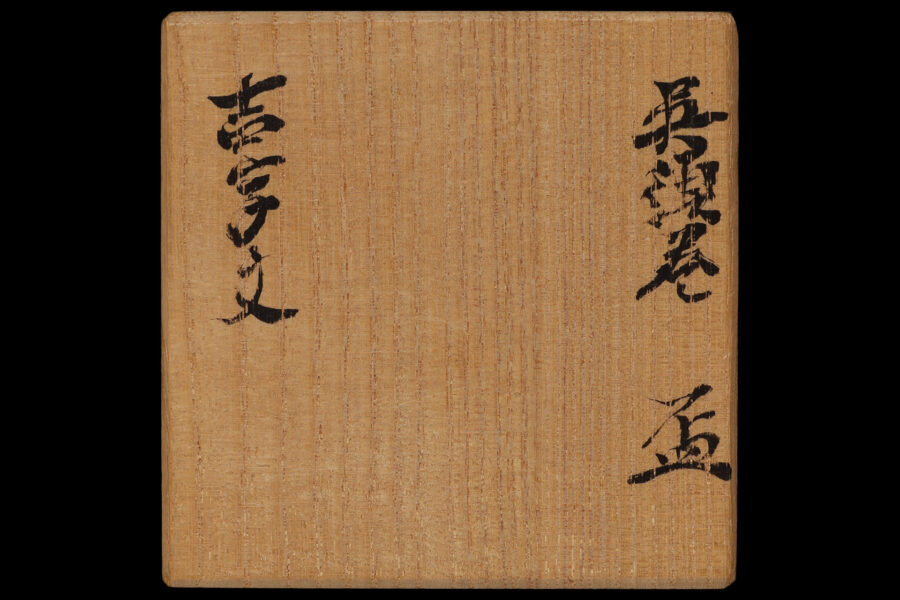 呉須巻 盃
吉字文